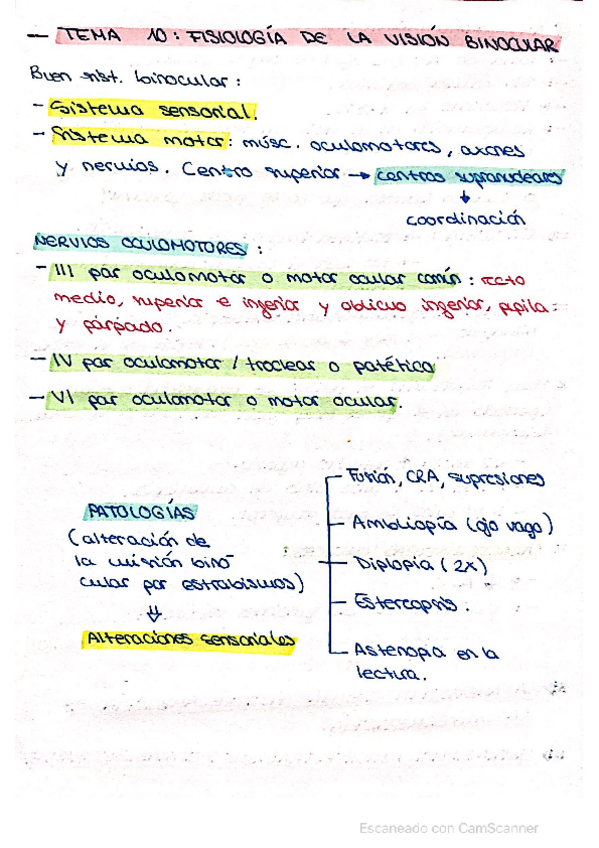 — TEMA 10: FISIOLOGÍA DE LA VISIÓN BINOCULAR
Buen sist. binocular:
- Sistema sensorial.
- Sistema motor: músc. oculomotores, axones
y nervios. Centro superior → centros supranucleares
↓
coordinación
NERVIOS OCULOMOTORES:
- III par oculomotor o motor ocular común: recto
medio, superior e inferior y oblicuo inferior, pupila
y párpado.
- IV par oculomotor / troclear o patético
- VI par oculomotor o motor ocular.
PATOLOGÍAS
(alteración de
la visión bino-
cular por estrabismos)
⇓
Alteraciones sensoriales
- Fusión, CRA, supresiones
- Ambliopía (ojo vago)
- Diplopia (2x)
- Estereopsis.
- Astenopia en la
lectura.
Escaneado con CamScanner